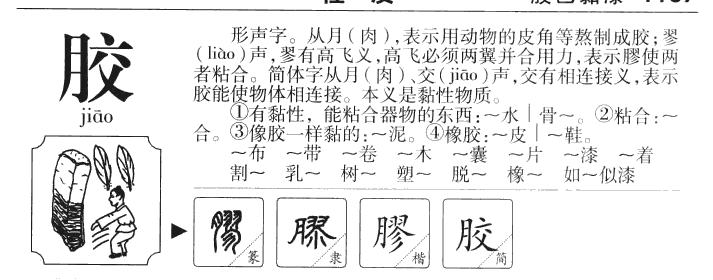 胶
jiāo
形声字。从月(肉),表示用动物的皮角等熬制成胶;翏
(liào)声,翏有高飞义,高飞必须两翼并合用力,表示膠使两
者粘合。简体字从月(肉)、交(jiāo)声,交有相连接义,表示
胶能使物体相连接。本义是黏性物质。
①有黏性,能粘合器物的东西:~水|骨~。②粘合:~
合。③像胶一样黏的:~泥。④橡胶:~皮|~鞋。
~布 ~带 ~卷 ~木 ~囊 ~片 ~漆 ~着
割~ 乳~ 树~ 塑~ 脱~ 橡~ 如~似漆
膠 篆
膠 隶
膠 楷
胶 简